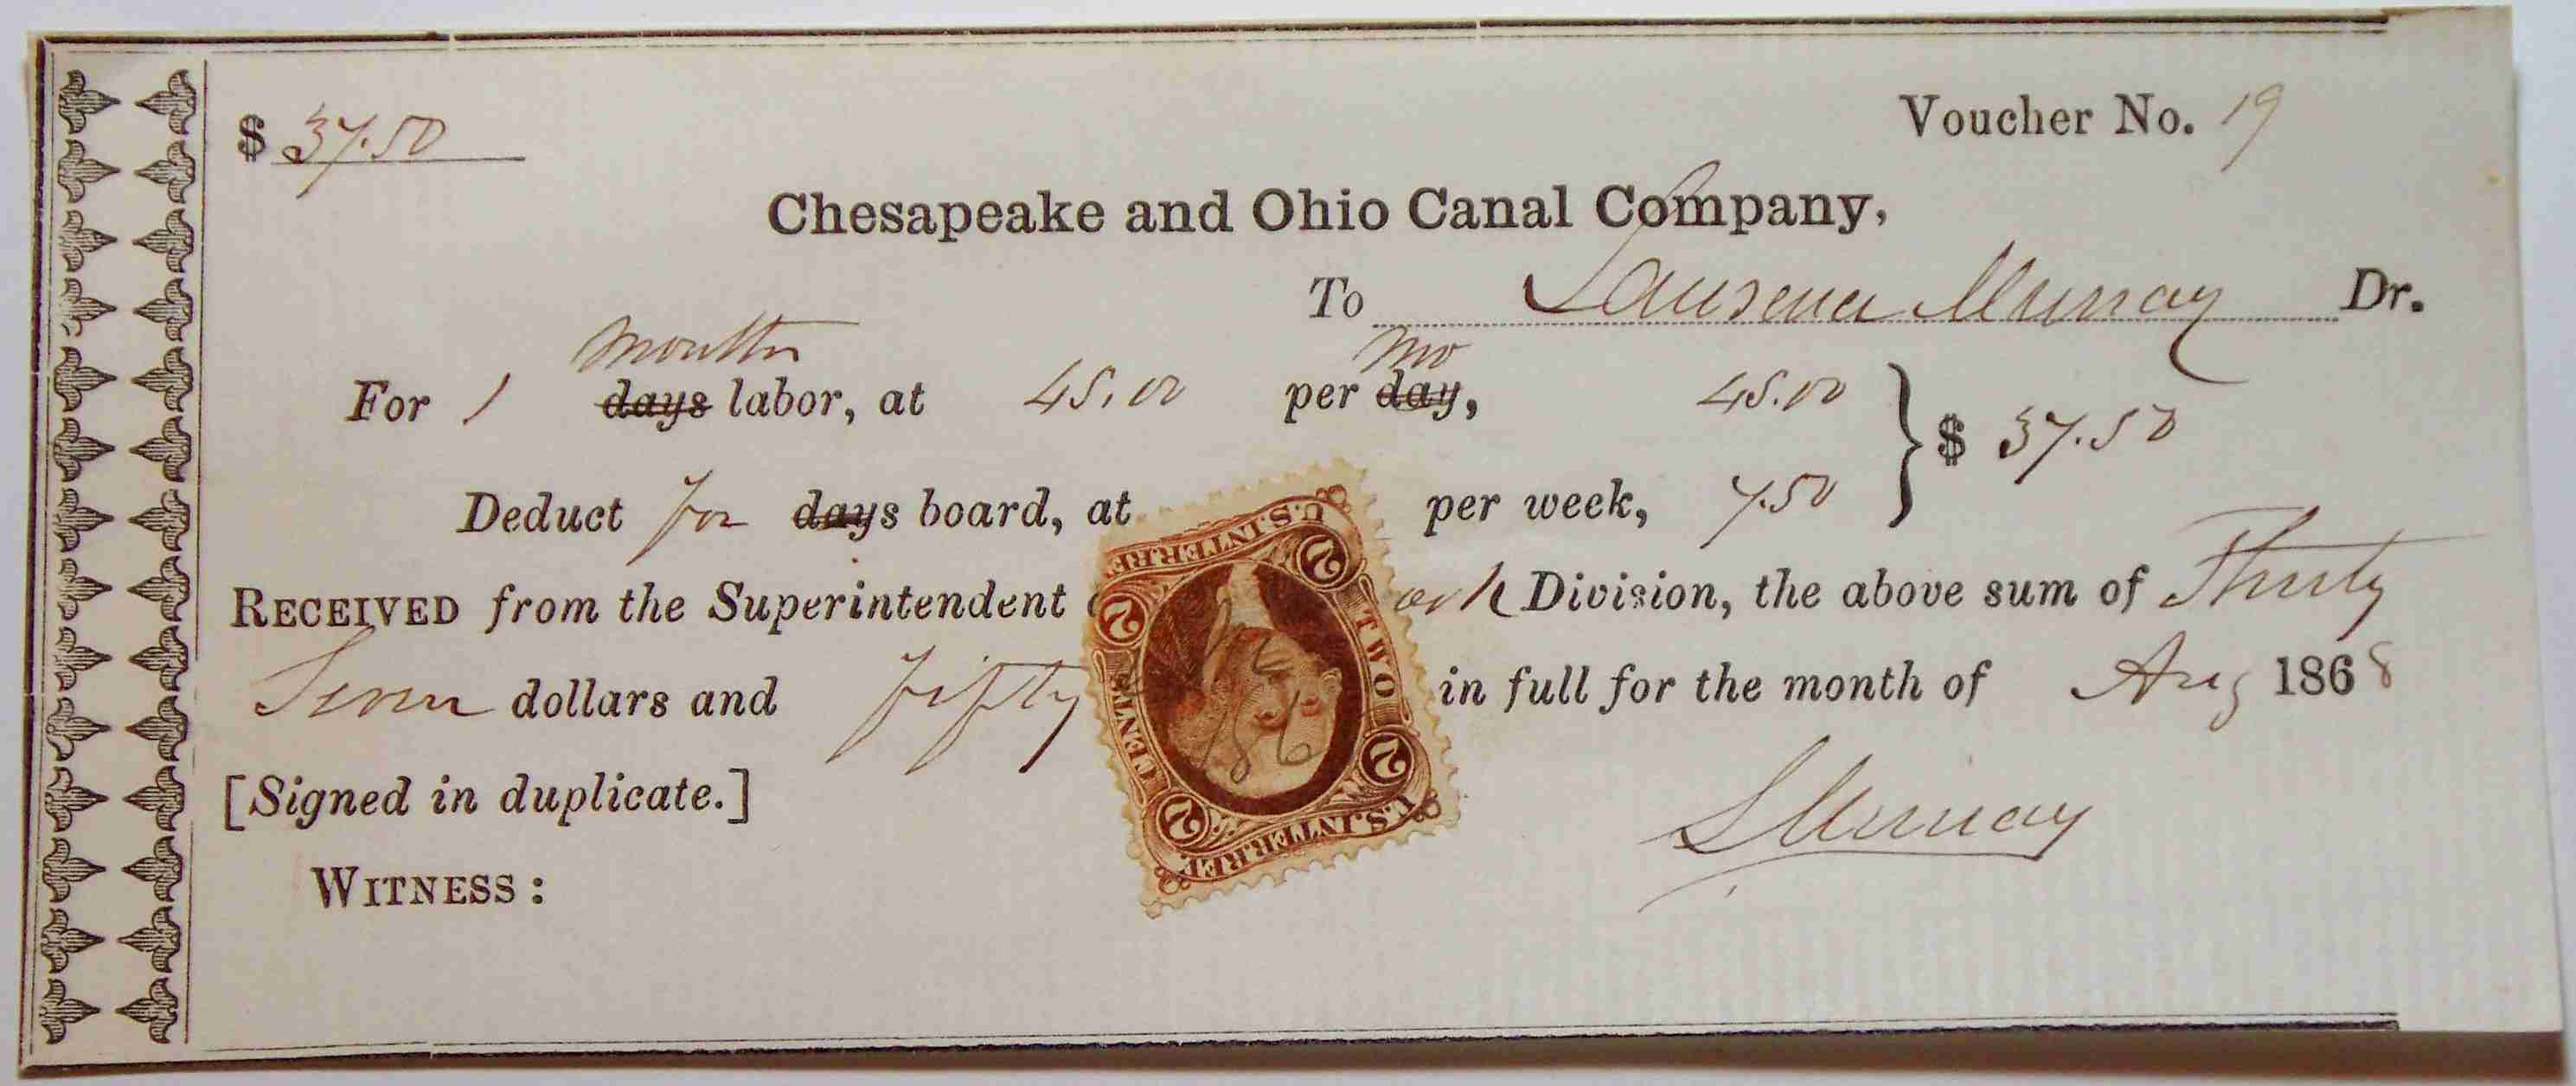 $ 37.50
Voucher No. 19
Chesapeake and Ohio Canal Company,
To Laurence Murray Dr.
months mo
For 1 days labor, at 45.00 per day, 45.00
$ 37.50
Deduct for days board, at per week, 7.50
RECEIVED from the Superintendent Division, the above sum of Thirty
Seven dollars and fifty in full for the month of Aug 1868
[Signed in duplicate.]
L Murray
WITNESS :
U.S. INTER. REV.
TWO CENTS
2 2 2 2
U.S. INTER. REV.